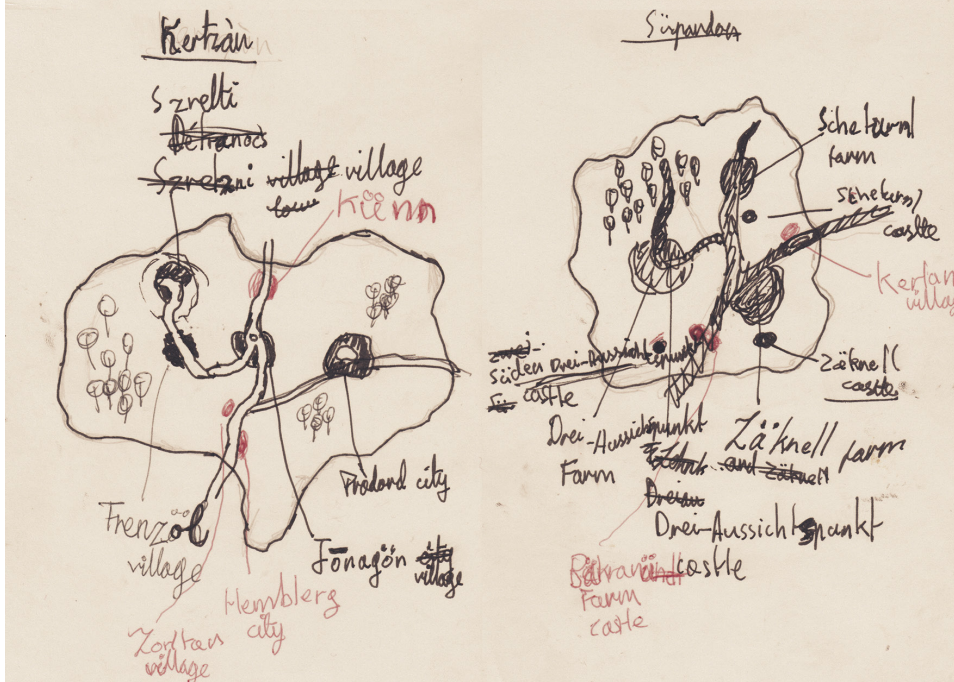 Kertzàn
Szrelti
Détranocs
Szretzni village village
town
Künn
Prodord city
Frenzöl
village
Jōnagön city
village
Hemblerg
city
Zortran
village
Sirpandan
Schetarnl
farm
Schetarnl
castle
Kertan
village
Zäknell
castle
zwei-
Süden Drei-Aussichtspunkt
castle
Drei
-Aussichtspunkt
Farm
Zäknell farm
and Zäknell
Dreiau
Drei-Aussichtspunkt
castle
Farm
castle